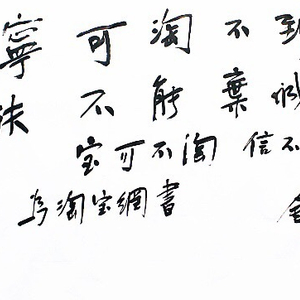 寧可淘不到
不能棄
宝可不淘 信不
为淘宝網書